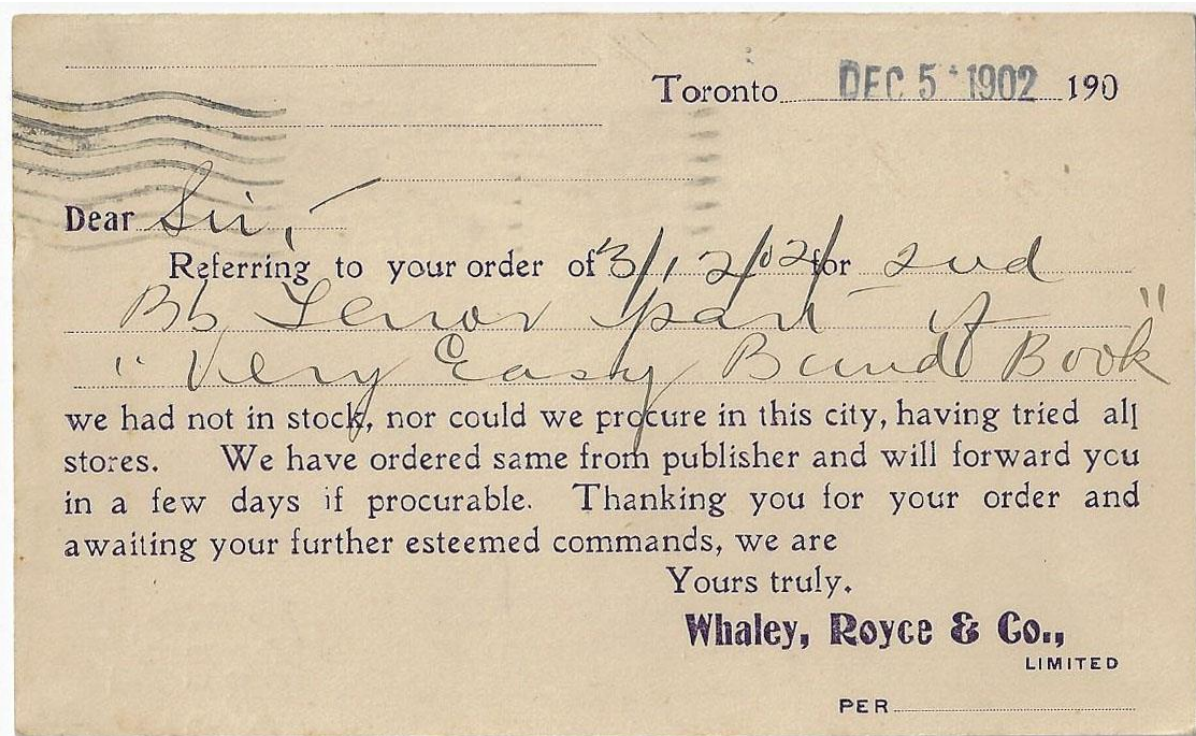 Toronto DEC 5 1902 190
Dear Sir,
Referring to your order of 3/12/02 for 2nd
Bb Tenor part of
"Very Easy Band Book"
we had not in stock, nor could we procure in this city, having tried all
stores. We have ordered same from publisher and will forward you
in a few days if procurable. Thanking you for your order and
awaiting your further esteemed commands, we are
Yours truly.
Whaley, Royce & Co.,
LIMITED
PER